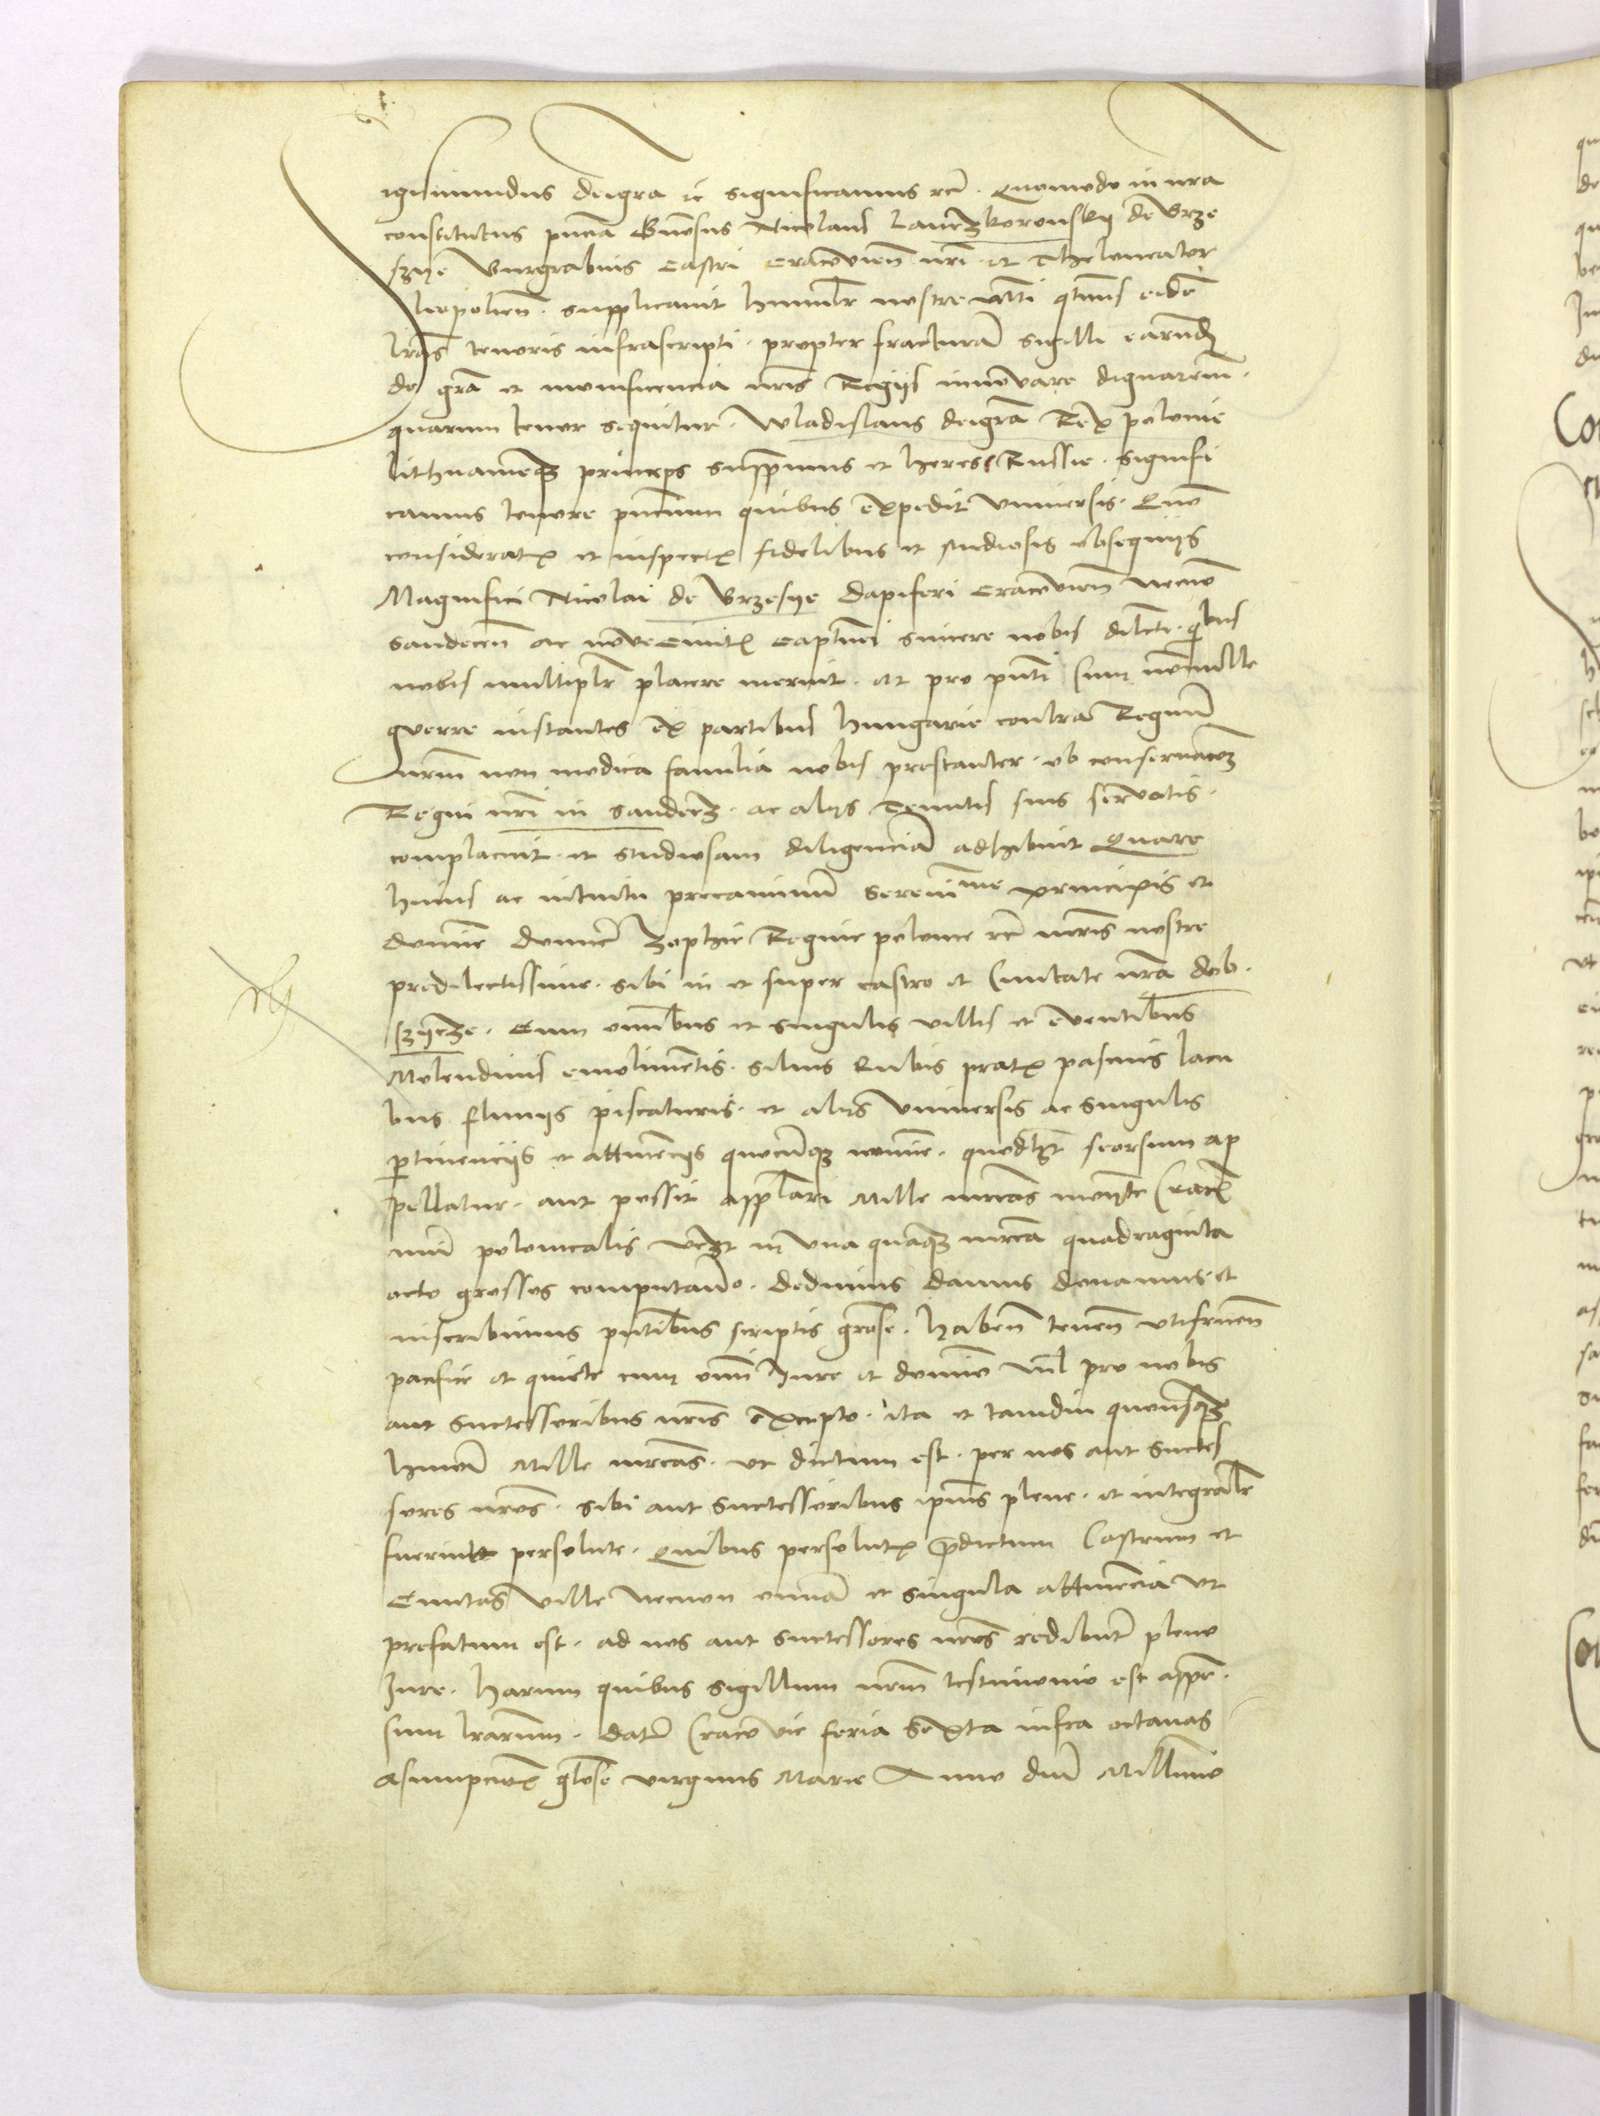 igismundus dei gra etc significamus etc. Quomodo in nra
constitutus pncia Gnosus Nicolaus Lanczkoronskij de Brze
szye Burgrabius Castri Cracovien nri et Theloneator
leopolien. supplicavit humilr nostre mti qtenus eidem
lras tenoris infrascripti. propter fracturam sigilli earundem
de gra et munificencia nris Regijs innovare dignaremr.
quarum tenor sequitur. Wladislaus dei gra Rex polonie
lithuanieque princeps supremus et heres Russie. signifi
camus tenore pncium quibus expedit universis. Quo
consideratis et inspectis fidelibus et studiosis obsequijs
Magnifici Nicolai de Brzesye dapiferi Cracovien necno
Sandecen ac nove Civitatis Captnei sincere nobis dilecti. qbus
nobis multiplr placere meruit. et pro pnti cum nonnulle
gwerre instantes ex partibus hungarie contra Regnum
nrm non modica familia nobis prestanter. ob conservacionem
Regni nri in Sandecz. ac alijs tenutis suis servatis.
complacuit. et studiosam diligenciam adhibuit Quare
huius ac intuitu precaminum Serenime principis et
domine domine Zophie Regine polonie etc consortis nostre
predilectissime. sibi in et super castro et Civitate nra dob.
szijcze. Cum omibus et singulis villis et eventibus
Molendinis emolimentis. silvis rubis pratis pascuis lacu
bus fluvijs piscaturis. et alijs universis ac singulis
pertinencijs et attinencijs quocumque nomine. quodlibet seorsum ap
pellatur. aut possit appellari Mille mrcas monete Cracovien
num polonicalis videlicet in una quaque mrca quadraginta
octo grossos computando. dedimus damus donamus. et
inscribimus pntibus scriptis grose. habend tenend utifruend
pacifice et quiete cum omni Jure et dominio nil pro nobis
aut successoribus nris excepto. ita et tamdiu quousque
huiusmodi Mille mrcas. ut dictum est. per nos aut succes
sores nros. sibi aut successoribus ipius plene. et integralr
fuerint persolute. Quibus persolutis predictum Castrum et
Civitas ville necnon omnia et singula attinencia ut
prefatum est. ad nos aut successores nros redibunt pleno
Jure. harum quibus sigillum nrm testimonio est appen.
sum lrarum. datum Cracovie feria sexta infra octavas
Asumpcionis glose virginis Marie Anno dni Millimo